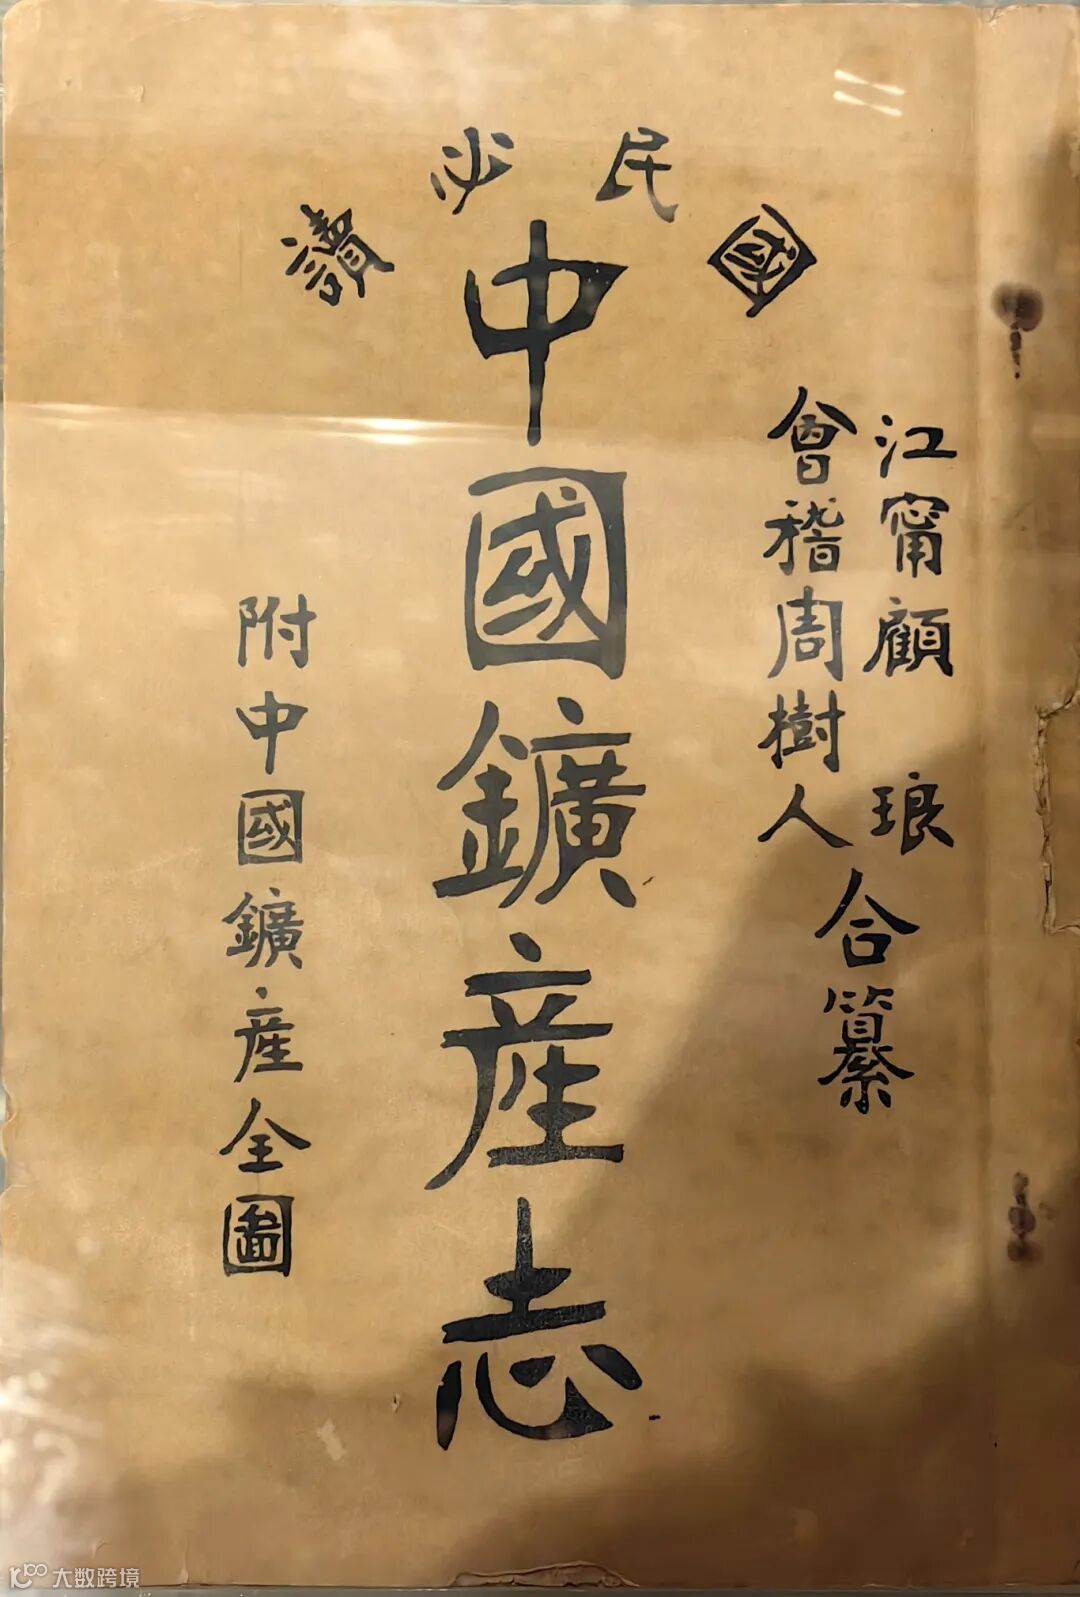 國民必讀
江甯顧琅
會稽周樹人
合纂
中國鑛產志
附中國鑛產全圖
大数跨境